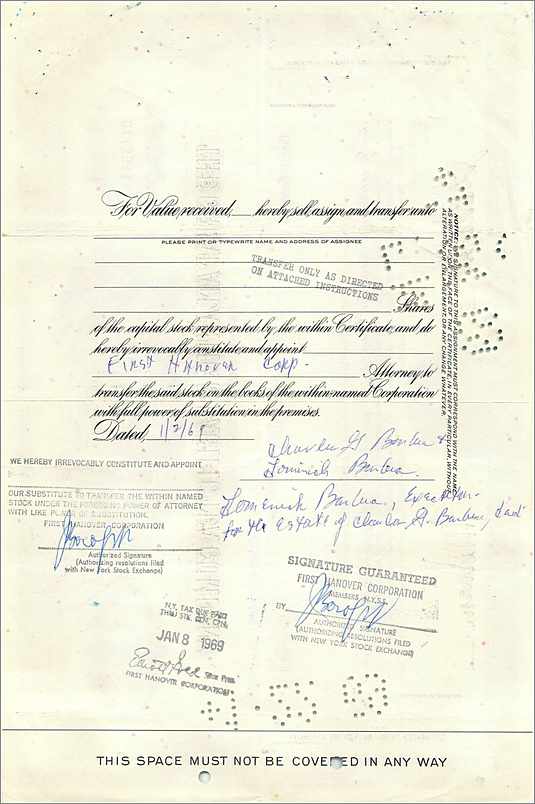 For Value received, hereby sell, assign and transfer unto
PLEASE PRINT OR TYPEWRITE NAME AND ADDRESS OF ASSIGNEE
TRANSFER ONLY AS DIRECTED
ON ATTACHED INSTRUCTIONS
Shares
of the capital stock represented by the within Certificate, and do
hereby irrevocably constitute and appoint
First Hanover Corp.
Attorney to
transfer the said stock on the books of the within-named Corporation
with full power of substitution in the premises.
Dated, 1/2/69
NOTICE: THE SIGNATURE TO THIS ASSIGNMENT MUST CORRESPOND WITH THE NAME
AS WRITTEN UPON THE FACE OF THE CERTIFICATE, IN EVERY PARTICULAR, WITHOUT
ALTERATION OR ENLARGEMENT, OR ANY CHANGE WHATEVER.
WE HEREBY IRREVOCABLY CONSTITUTE AND APPOINT
OUR SUBSTITUTE TO TRANSFER THE WITHIN NAMED
STOCK UNDER THE FOREGOING POWER OF ATTORNEY
WITH LIKE POWER OF SUBSTITUTION.
FIRST HANOVER CORPORATION
Authorized Signature
(Authorizing resolutions filed
with New York Stock Exchange)
Executor
for the Estate of
SIGNATURE GUARANTEED
FIRST HANOVER CORPORATION
MEMBERS N.Y.S.E.
BY
AUTHORIZED SIGNATURE
(AUTHORIZING RESOLUTIONS FILED
WITH NEW YORK STOCK EXCHANGE)
N.Y. TAX DUE PAID
THRU STK. CLR. CPN.
JAN 8 1969
FIRST HANOVER CORPORATION
THIS SPACE MUST NOT BE COVERED IN ANY WAY